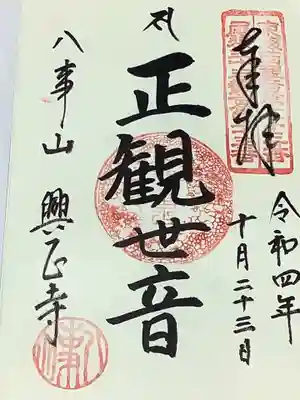 奉拝
令和四年
十月二十三日
正観世音
八事山 興正寺